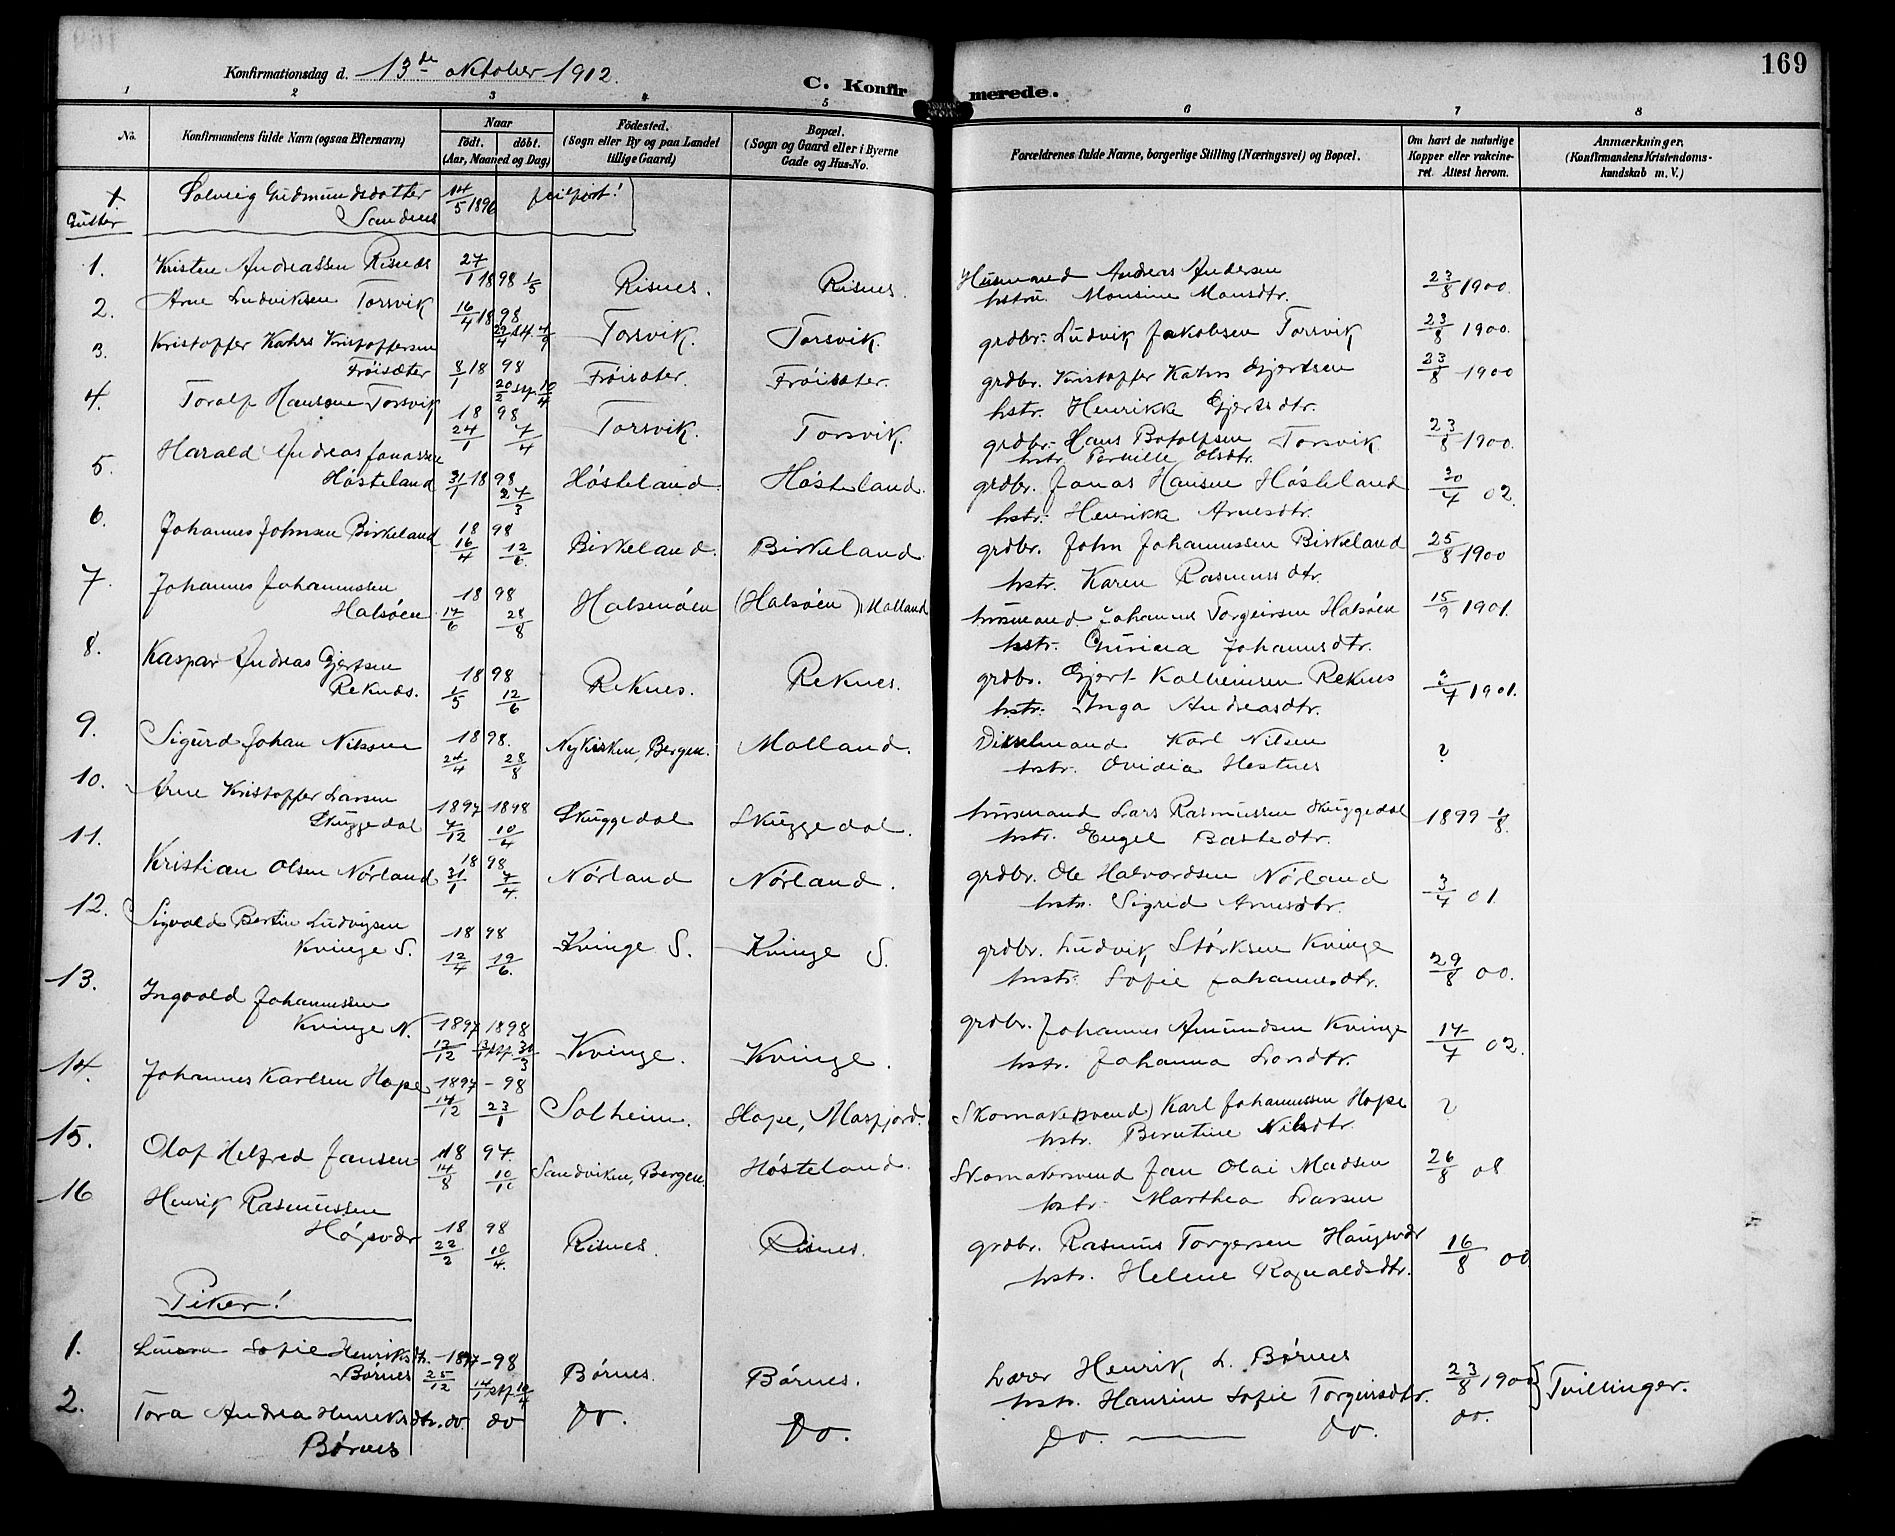 169
Konfirmationsdag d. 13de oktober 1912.
C. Konfirmerede.
1 2 3 4 5 6 7 8
No. Konfirmandens fulde Navn (ogsaa Efternavn) Naar født. døbt. (Aar, Maaned og Dag) Fødested. (Sogn eller By og paa Landet tillige Gaard) Bopæl. (Sogn og Gaard eller i Byerne Gade og Hus-No. Forældrenes fulde Navne, borgerlige Stilling (Næringsvei) og Bopæl. Om havt de naturlige Kopper eller vakcineret. Attest herom. Anmærkninger. (Konfirmandens Kristendomskundskab m. V.)
Solveig Gudmundsdatter 14/5 1896 feilført!
Sandnes
Gutter
1. Kristen Andreassen Risnes 27/1 1898 1/5 Risnes. Risnes. Husmand Andreas Andersen 23/8 1900.
hstru. Monsine Monsdtr.
2. Arne Ludviksen Torsvik 16/4 1898 Torsvik. Torsvik. grdbr. Ludvik Jakobsen Torsvik 23/8 1900.
3. Kristoffer Kahrs Kristoffersen
Frøisæter 8/1 1898 20/2 stf. 10/4 Frøisæter. Frøisæter. grdbr. Kristoffer Kahrs Gjertsen 23/8 1900
hstr. Henrikka Gjertsdtr.
4. Toralf Hansen Torsvik 1898 24/1 7/4 Torsvik. Torsvik. grdbr. Hans Botolfsen Torsvik 23/8 1900.
hstr. Pernille Olsdtr.
5. Harald Andreas Jonassen
Høsteland 31/1 1898 27/3 Høsteland. Høsteland. grdbr. Jonas Hansen Høsteland 30/4 02.
hstr. Henrikka Arnesdtr.
6. Johannes Johnsen Birkeland 1898 16/4 12/6. Birkeland. Birkeland. grdbr. John Johannessen Birkeland 25/8 1900
hstr. Karen Rasmusdtr.
7. Johannes Johannessen 1898
Halsøen 17/6 28/8 Halsenøen (Halsøen) Molland husmand Johannes Torgeirsen Halsøen 15/9 1901.
hstr. Johannesdtr.
8. Kaspar Andreas Gjertsen 1898
Reknes. 1/5 12/6 Reknes. Reknes. grdbr. Gjert Reknes 3/7 1901.
hstr. Inga Andreasdtr.
9. Sigurd Johan Nilssen 1898. 24/4 28/8 Nykirken, Bergen. Molland. Karl Nilsen ?
hstr. Ovidia Hestnes
10. Arne Kristoffer Larsen 1897 1898
Skuggedal 7/12 10/4 Skuggedal Skuggedal. husmand Lars Rasmussen Skuggedal 1899 1/8.
hstr. Engel Bastedtr.
11. Kristian Olsen Nørland 1898 31/1 7/4. Nørland Nørland. grdbr. Ole Halvordsen Nørland 3/7 01
hstr. Sigrid Arnesdtr.
12. Sigvald Bertin Ludvigsen 1898
Kvinge S. 12/4 19/6. Kvinge S. Kvinge S. grdbr. Ludvik Størksen Kvinge 29/8 00.
hstr. Sofie Johannesdtr.
13. Ingvald Johannessen
Kvinge N. 1897 1898 Kvinge. Kvinge. grdbr. Johannes Amundsen Kvinge 14/7 02.
hstr. Johanna Larsdtr.
14. Johannes Karlsen Hope 1897 - 98 14/12 23/1 Solheim. Hope, Masfjord. Skomakersvend) Karl Johannessen Hope ?
hstr. Berntine Nilsdtr.
15. Olaf Helfred Jansen 1897. 14/8 10/10 Sandviken, Bergen. Høsteland. Skomakersvend Jan Olai Madsen 26/8 08
hstr. Marthea Larsen
16 Henrik Rasmussen 1898
Høgsvær 22/2 10/4. Risnes. Risnes. grdbr. Rasmus Torgersen Haugsvær 16/8 00
hstr. Helene Ragnaldsdtr.
Piker!
1. Laura Sofie Henriksdtr. 1897 - 98
Børnes 25/12 14/1 stf. 10/4 Børnes. Børnes. Lærer Henrik L. Børnes 23/8 1900 } Tvillinger.
hstr. Hansine Sofie Torgeirsdtr.
2. Tora Andrea Henriksdtr. do. do Do. Do. Do. — Do. do.
Børnes